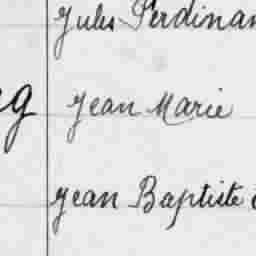 Jules Ferdinan
g Jean Marie
Jean Baptiste